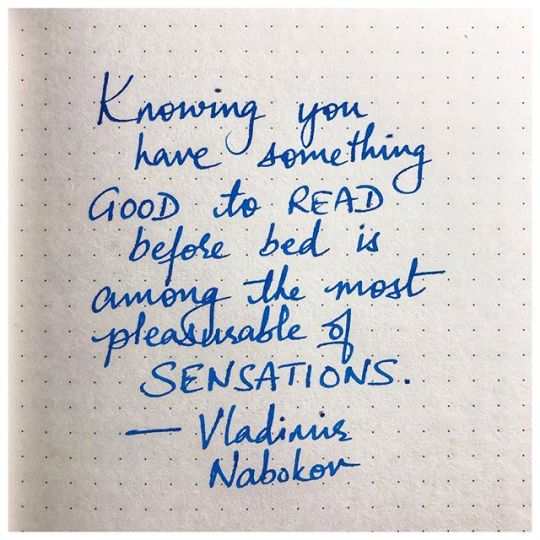 Knowing you
have something
GOOD to READ
before bed is
among the most
pleasurable of
SENSATIONS.
— Vladimir
Nabokov